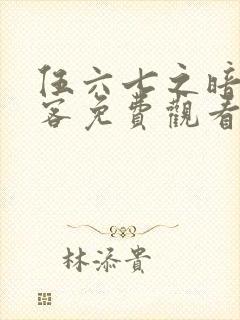 伍六七之暗
客免費觀看
林添貴